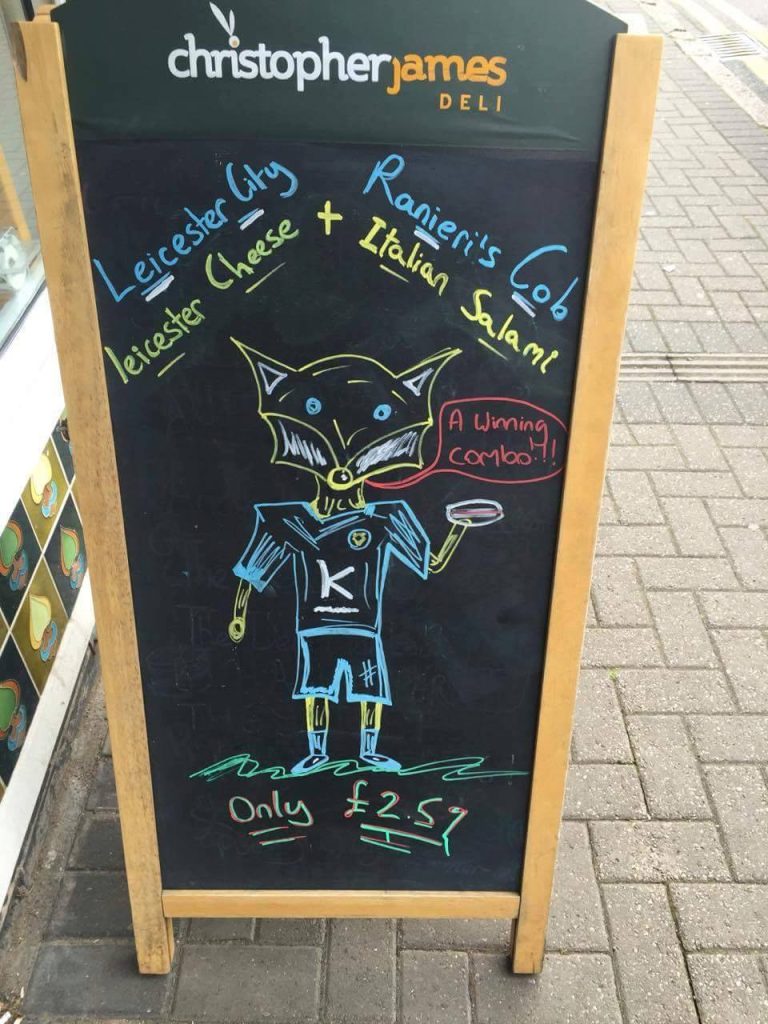 christopherjames
DELI
Leicester City
Ranieri's Cob
leicester Cheese + Italian Salami
A Winning
combo!!!
K
#
Only £2.59